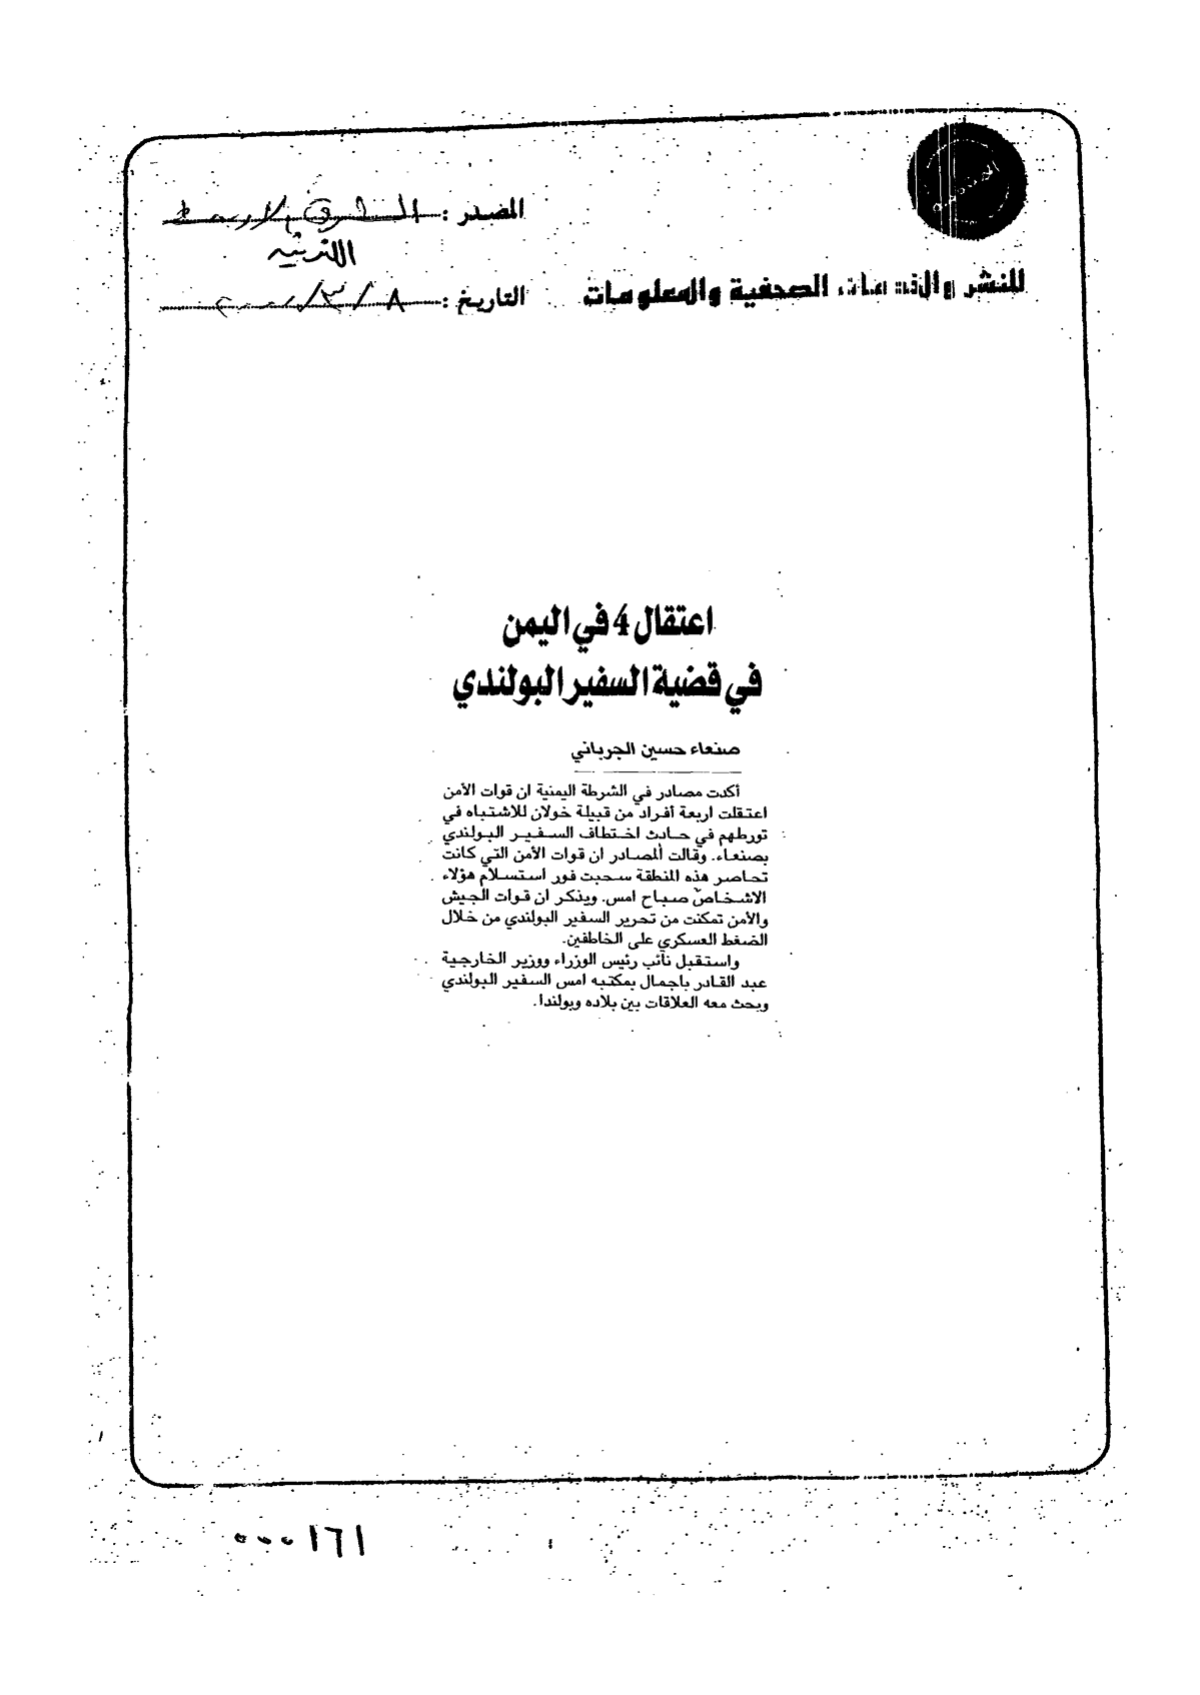 المصدر : الشرق الاوسط
اللندنية
للنشر والخدمات الصحفية والمعلومات
التاريخ : ٨ / ٣ / ٢٠٠٠
اعتقال 4 في اليمن
في قضية السفير البولندي
صنعاء حسين الجرباني
أكدت مصادر في الشرطة اليمنية ان قوات الأمن
اعتقلت اربعة أفراد من قبيلة خولان للاشتباه في
تورطهم في حادث اختطاف السفير البولندي
بصنعاء. وقالت المصادر ان قوات الأمن التي كانت
تحاصر هذه المنطقة سحبت فور استسلام هؤلاء
الاشخاص صباح امس. ويذكر ان قوات الجيش
والأمن تمكنت من تحرير السفير البولندي من خلال
الضغط العسكري على الخاطفين.
واستقبل نائب رئيس الوزراء ووزير الخارجية
عبد القادر باجمال بمكتبه امس السفير البولندي
وبحث معه العلاقات بين بلاده وبولندا.